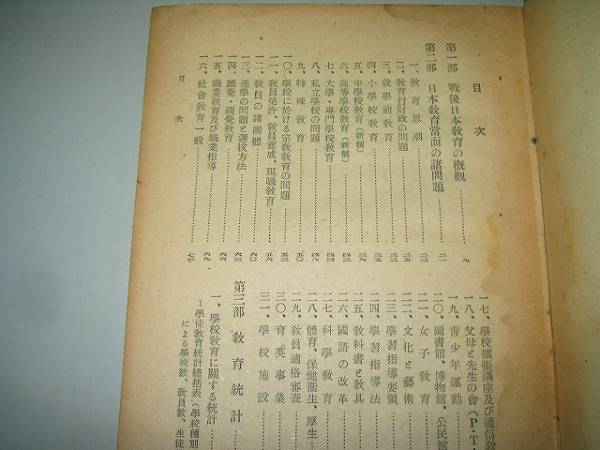 目次
第一部 戰後日本教育の概觀
第二部 日本教育當面の諸問題
一、教育思潮
二、教育行財政の問題
三、就學前教育
四、小學校教育
五、中學校教育(新制)
六、高等學校教育(新制)
七、大學・專門學校教育
八、私立學校の問題
九、特殊教育
一〇、學校に於ける宗教教育の問題
一一、教員免許、教員養成、現職教育
一二、教員の諸團體
一三、進學の問題と選拔方法
一四、聽覺・視覺教育
一五、職業教育及び職業指導
一六、社會教育一般
目次
一七、學校擴張講座及び通信教
一八、父母と先生の會(P・T・
一九、青少年運動
二〇、圖書館、博物館、公民館
二一、女子教育
二二、文化と藝術
二三、學習指導要領
二四、學習指導法
二五、教科書と教具
二六、國語の改革
二七、科學教育
二八、體育、保健衞生、厚生
二九、教員適格審査
三〇、育英事業
三一、學校施設
第三部 教育統計
一、學校教育に關する統計
1 學徒教育統計總括表(學校種別
による學校數、教員數、生徒